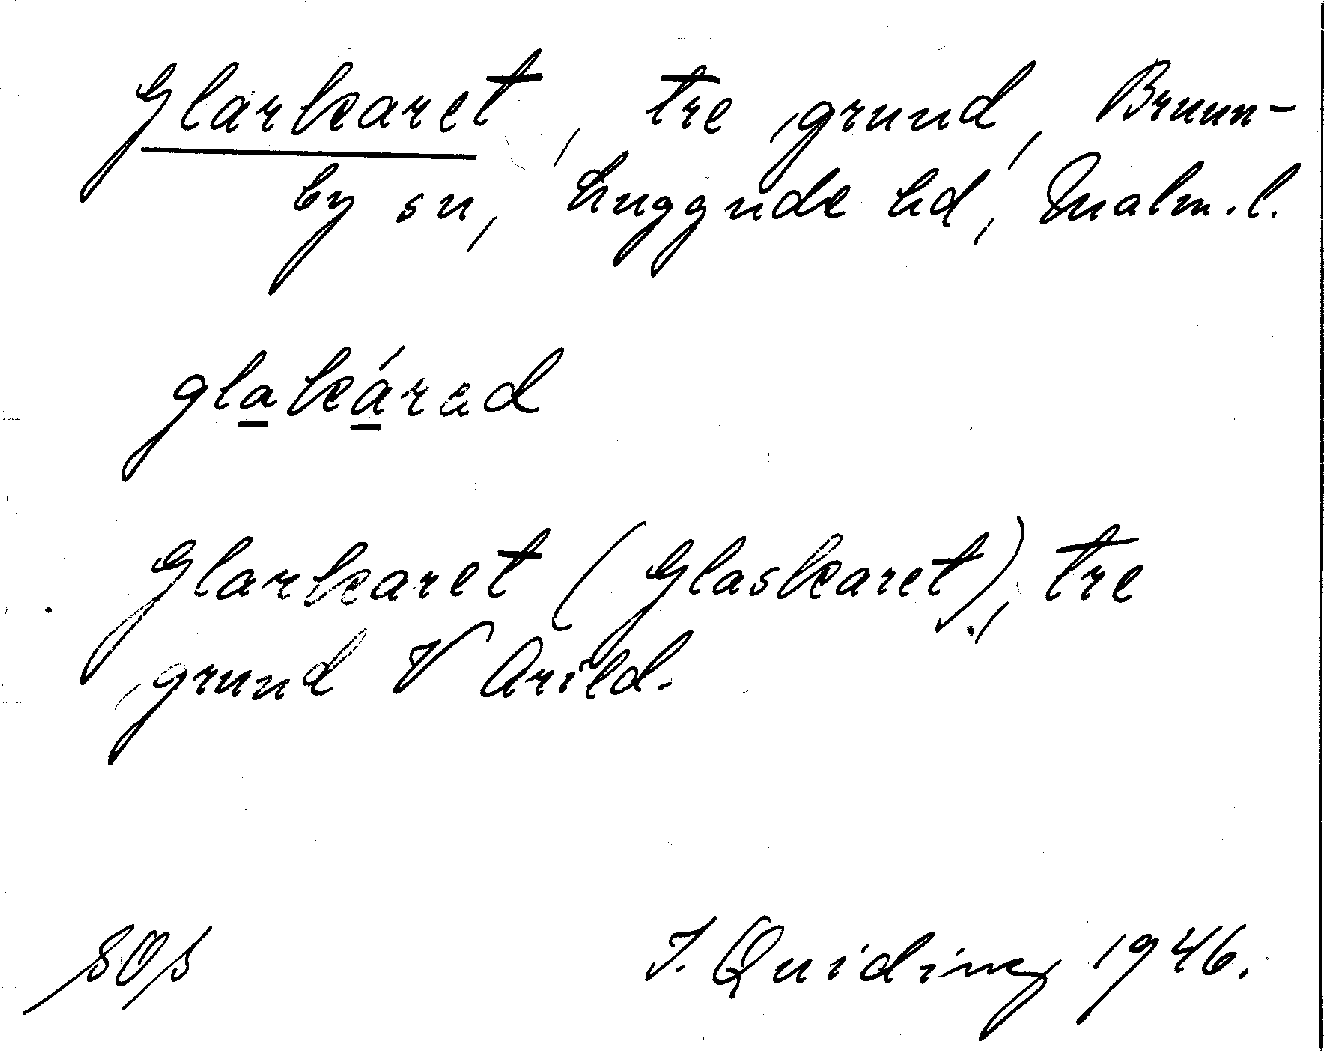 Glarkaret, tre ,grund, Brunn-
by sn, Luggude hd, Malm. l.
glakárad
Glarkaret (Glaskaret), tre
,grund V Arild.
I. Quiding 1946.